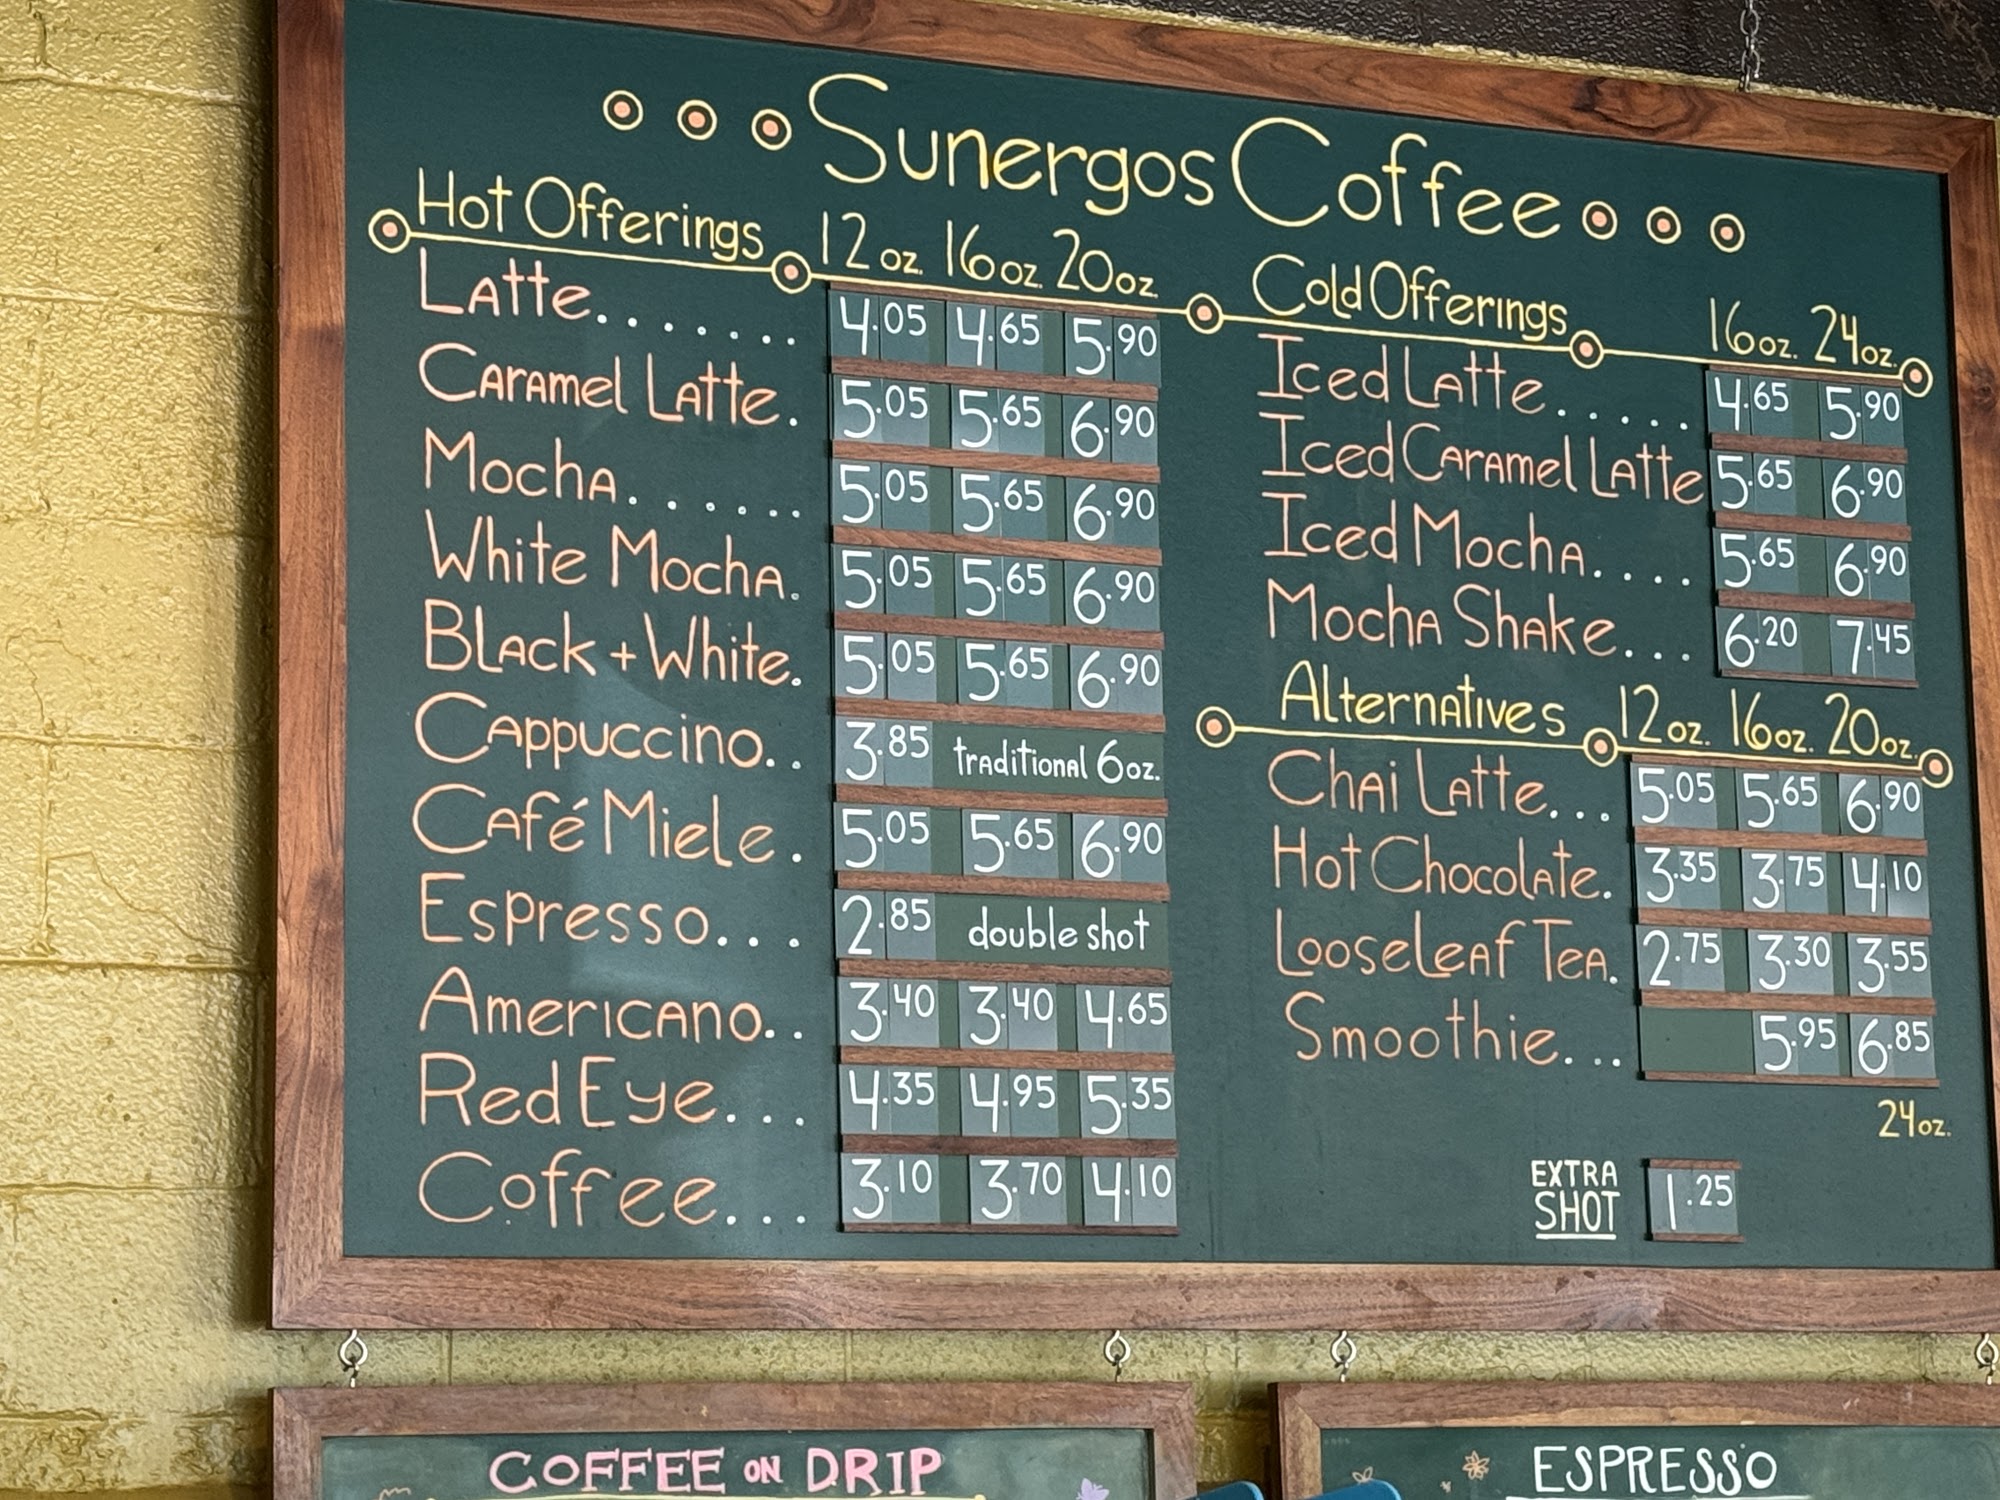 Sunergos Coffee
Hot Offerings 12oz. 16oz. 20oz.
Latte....... 4.05 4.65 5.90
Caramel Latte. 5.05 5.65 6.90
Mocha...... 5.05 5.65 6.90
White Mocha. 5.05 5.65 6.90
Black + White. 5.05 5.65 6.90
Cappuccino.. 3.85 traditional 6oz.
Café Miele. 5.05 5.65 6.90
Espresso... 2.85 double shot
Americano.. 3.40 3.40 4.65
Red Eye... 4.35 4.95 5.35
Coffee... 3.10 3.70 4.10
Cold Offerings 16oz. 24oz.
Iced Latte..... 4.65 5.90
Iced Caramel Latte 5.65 6.90
Iced Mocha.... 5.65 6.90
Mocha Shake... 6.20 7.45
Alternatives 12oz. 16oz. 20oz.
Chai Latte... 5.05 5.65 6.90
Hot Chocolate. 3.35 3.75 4.10
Looseleaf Tea. 2.75 3.30 3.55
Smoothie... 5.95 6.85
24oz.
EXTRA
SHOT 1.25
COFFEE ON DRIP
ESPRESSO